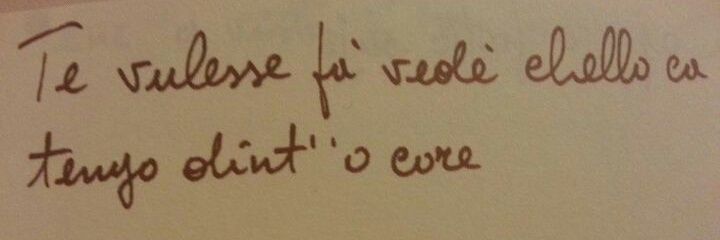 Te vulesse fa' vedè chello ca
tengo dint''o core